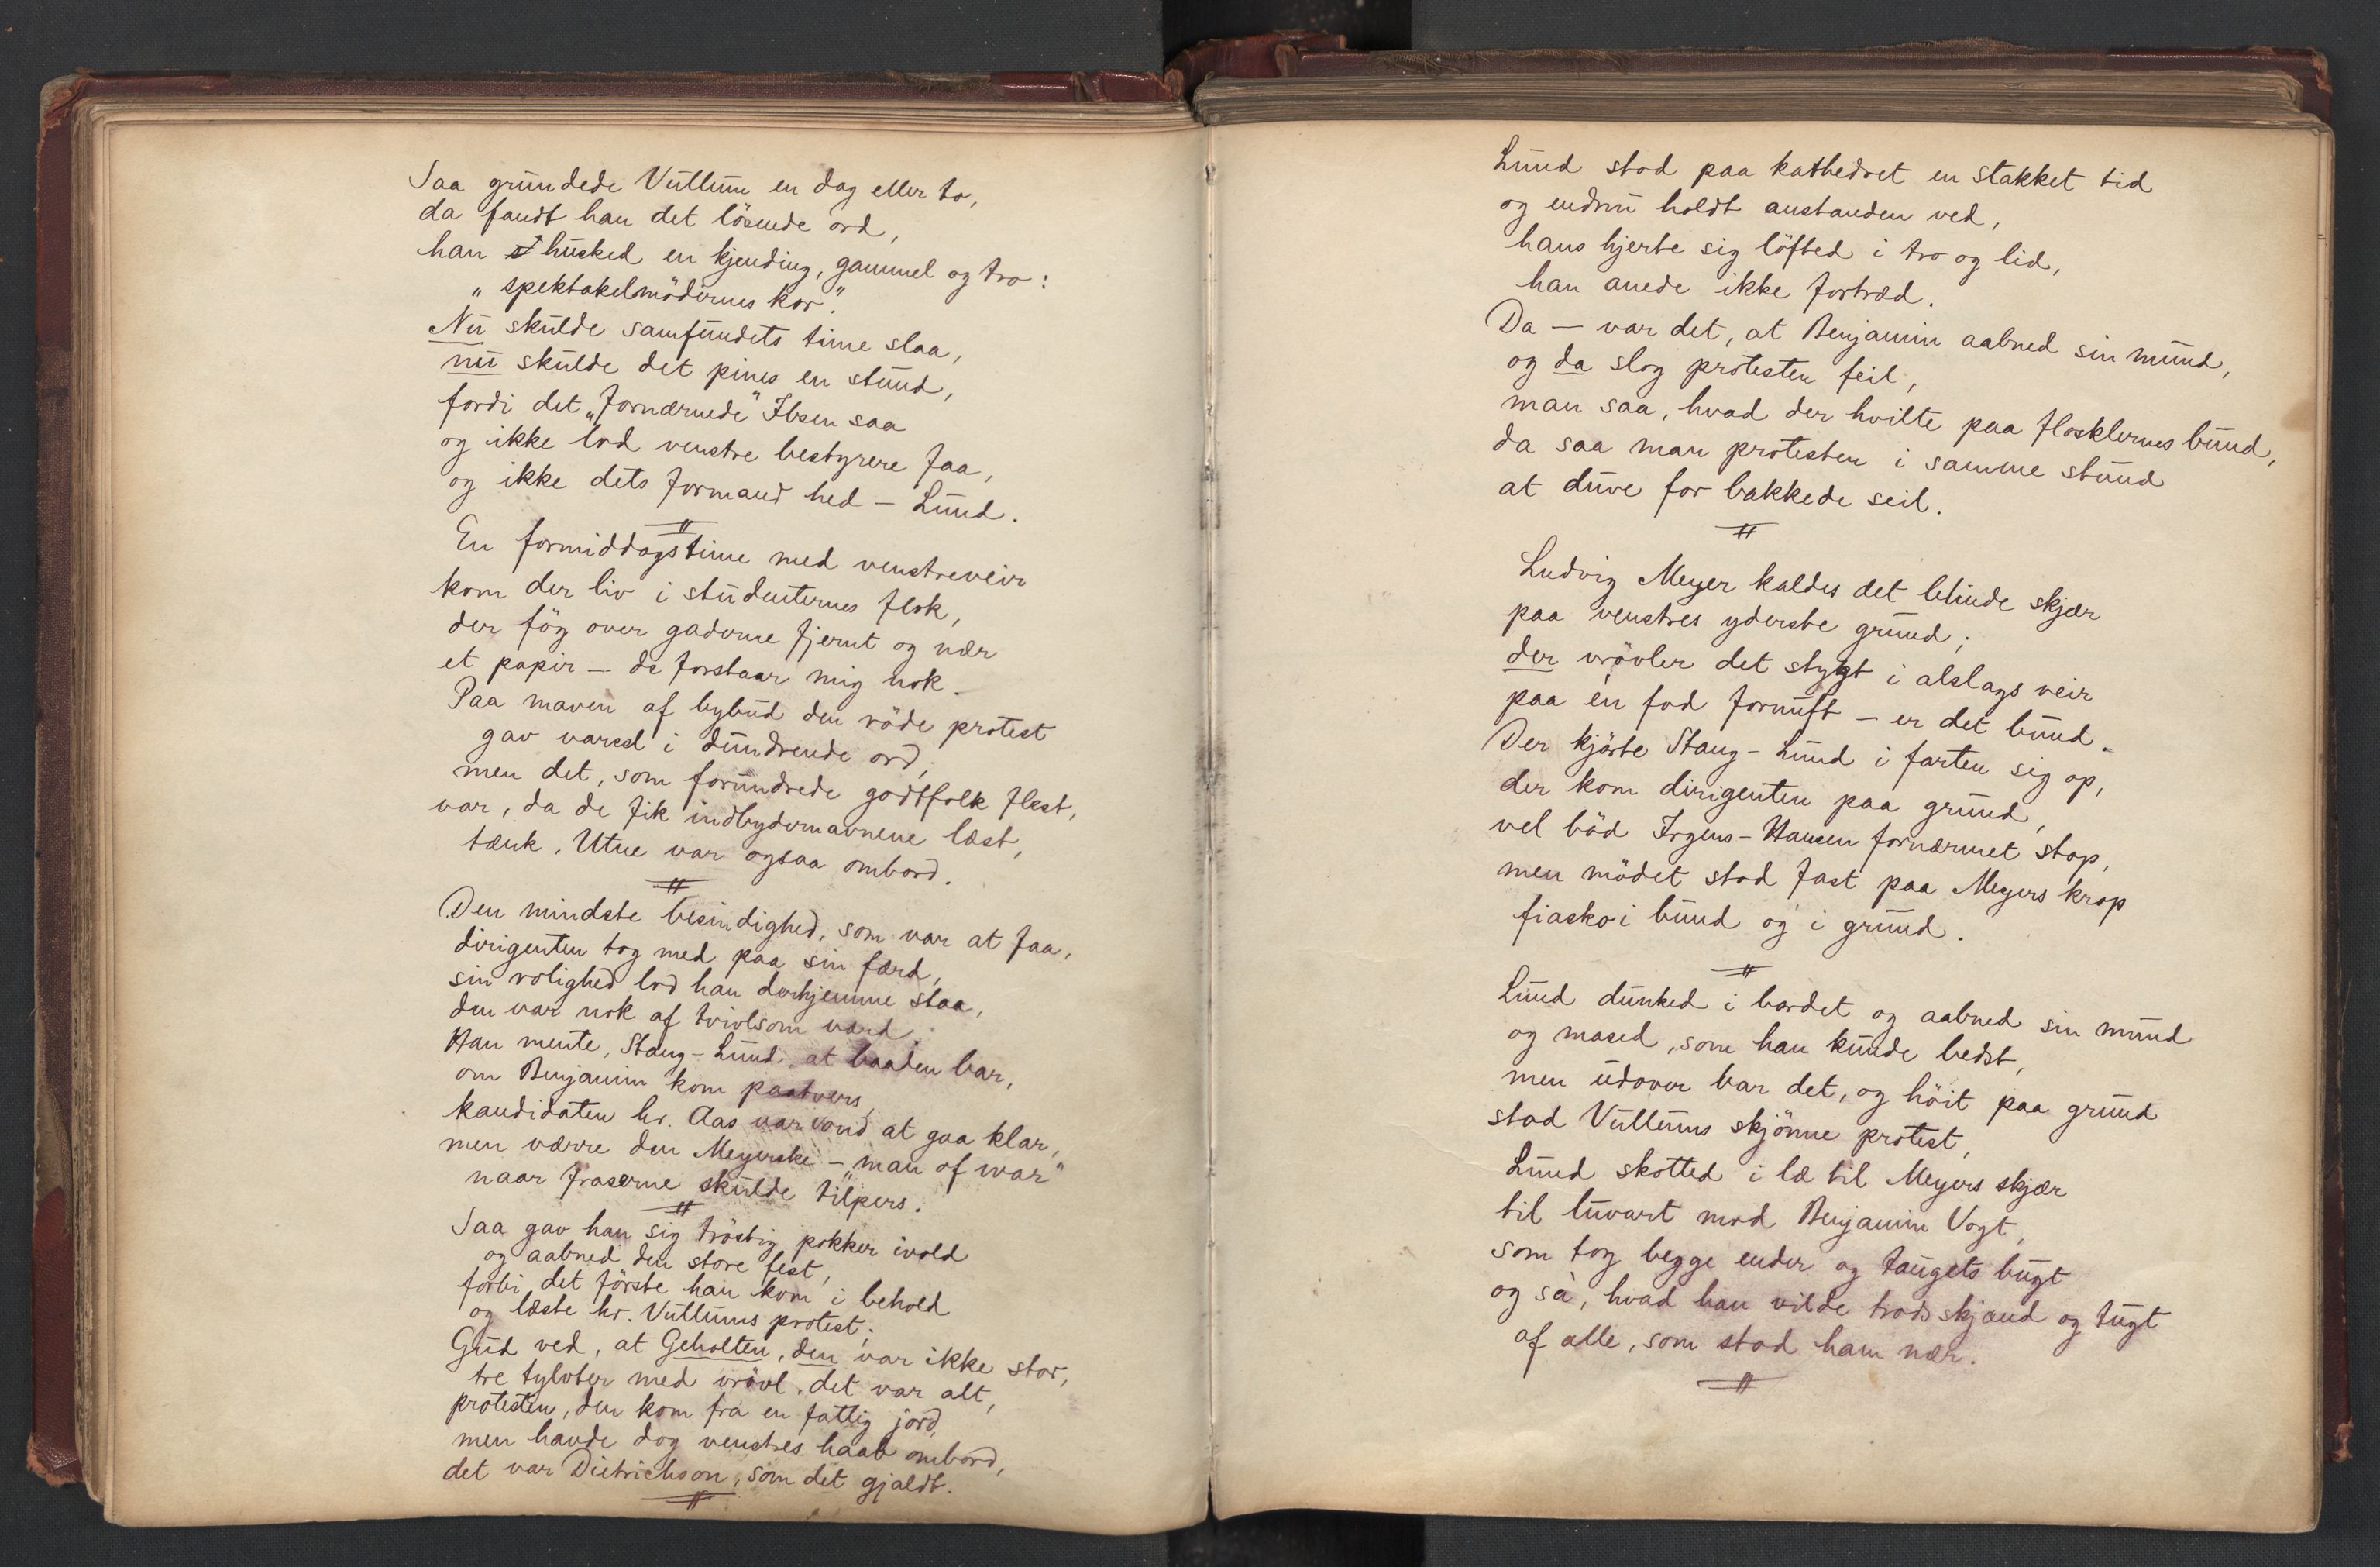 Saa grundede Vullum en dag eller to,
da fandt han det lösende ord,
han husked en kjending, gammel og tro:
„spektakelmödernes kor".
Nu skulde samfundets time slaa,
nu skulde det pines en stund,
fordi det „fornærmede" Ibsen saa
og ikke lod venstre bestyrere faa,
og ikke dets formand hed – Lund.
En formiddagstime med venstreveir
kom der liv i studenternes flok,
der fög over gaderne fjernt og nær
et papir – de forstaar mig nok.
Paa maven af bybud den röde protest
gav varsel i dundrende ord,
men det, som forundrede godtfolk flest,
var, da de fik indbydernavnene læst,
tænk, Utne var ogsaa ombord.
Den mindste besindighed, som var at faa,
dirigenten tog med paa sin færd,
sin rolighed lod han derhjemme staa,
den var nok af tvivlsom værd.
Han mente, Stang-Lund, at baaden bar,
om Benjamin kom paatvers,
kandidaten hr. Aas var vond at gaa klar,
men værre den Meyerske – „man of war"
naar fraserne skulde tilpers.
Saa gav han sig tröstig pokker ivold
og aabned den store fest,
forbi det förste han kom i behold
og læste hr. Vullums protest;
Gud ved, at Geholten, den var ikke stor,
tre tylvter med vrövl, det var alt,
protesten, den kom fra en fattig jord,
men havde dog venstres haab ombord,
det var Dietrichson, som det gjaldt.
Lund stod paa kathedret en stakket tid
og endnu holdt anstanden ved,
hans hjerte sig löfted i tro og lid,
han anede ikke fortræd.
Da – var det, at Benjamin aabned sin mund,
og da slog protesten feil,
man saa, hvad der hvilte paa flosklernes bund,
da saa man protesten i samme stund
at duve for bakkede seil.
Ludvig Meyer kaldes det blinde skjær
paa venstres yderste grund;
der vrövler det stygt i alslags veir
paa én fod fornuft – er det bund.
Der kjörte Stang-Lund i farten sig op,
der kom dirigenten paa grund,
vel böd Irgens-Hansen fornærmet stop,
men mödet stod fast paa Meyers krop
fiasko i bund og i grund.
Lund dunked i bordet og aabned sin mund
og mased, som han kunde bedst,
men udover bar det, og höit paa grund
stod Vullums skjönne protest,
Lund skotted i læ til Meyers skjær
til luvart mod Benjamin Vogt,
som tog begge ender og taugets bugt
og sà, hvad han vilde trods skjænd og tugt
af alle, som stod ham nær.